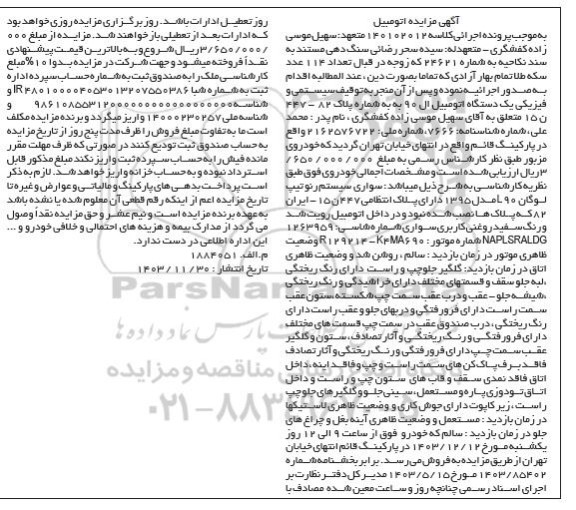 آگهی مزایده اتومبیل
به موجب پرونده اجرائی کلاسه ۱۴۰۱۰۲۰۱۲ متعهد: سهیل موسی
زاده کفشگری - متعهدله: سیده سحر رضائی سنگ دهی مستند به
سند نکاحیه به شماره ۲۴۶۲۱ که زوجه در قبال تعداد ۱۱۴ عدد
سکه طلا تمام بهار آزادی که تماما بصورت دین، عند المطالبه اقدام
به صدور اجرائیه نموده و پس از آن منجر به توقیف سیستمی و
فیزیکی یک دستگاه اتومبیل ال ۹۰ به به شماره پلاک ۸۲ - ۴۴۷
ن ۱۵ متعلق به آقای سهیل موسی زاده کفشگری ، نام پدر : محمد
علی، شماره شناسنامه: ۷۶۶۶، شماره ملی: ۲۱۶۲۵۷۶۷۲۲ واقع
در پارکینگ قائم واقع در انتهای خیابان تهران گردید که خودروی
مزبور طبق نظر کارشناس رسمی به مبلغ ۰۰۰/ ۶۵۰/۰۰۰/
۳ریال ارزیابی شده است و مشخصات اجمالی خودروی فوق طبق
نظریه کارشناسی به شرح ذیل میباشد: سواری سیستم رنو تیپ
لوگان L۹۰ مدل ۱۳۹۵ دارای پلاک انتظامی ۴۴۷ن۱۵ - ایران
۸۲ که پلاک ها نصب شده نبود و در داخل اتومبیل رویت شد
ورنگ سفید روغنی کاربری سواری شماره شاسی: ۱۲۶۳۹۵۹
NAPLSRALDG شماره موتور : K۴MA۶۹۰-R۱۲۹۲۱۴ وضعیت
ظاهری موتور در زمان بازدید : سالم ، روشن شد و وضعیت ظاهری
اتاق در زمان بازدید: گلگیر جلو چپ و راست دارای رنگ ریختگی
،لبه جلو سقف و قسمتهای مختلف دارای خراشیدگی و رنگ ریختگی
،شیشه جلو - عقب و درب عقب سمت چپ شکسته ،ستون عقب
سمت راست دارای فرورفتگی و دربهای جلو و عقب راست دارای
رنگ ریختگی ، درب صندوق عقب در سمت چپ قسمت های مختلف
دارای فرورفتگی و رنگ ریختگی و آثار تصادف ، ستون و گلگیر
عقب سمت چپ دارای فرورفتگی و رنگ ریختگی و آثار تصادف
فاقد برف پاک کن های سمت راست و چپ و فاقد اینه ، داخل
اتاق فاقد نمدی سقف و قاب های ستون چپ و راست و داخل
اتاق تودوزی پاره و مستعمل ، سینی جلو و گلگیرهای جلو چپ
راست ، زیر کاپوت دارای جوش کاری و وضعیت ظاهری لاستیکها
در زمان بازدید : مستعمل و وضعیت ظاهری آینه بغل و چراغ های
جلو در زمان بازدید : سالم که خودرو فوق از ساعت ۹ الی ۱۲ روز
یکشنبه مورخ ۱۴۰۳/۱۲/۱۲ در پارکینگ قائم انتهای خیابان
تهران از طریق مزایده به فروش می رسد. برابر بخشنامه شماره
۱۴۰۳/۸۵۴۰۲ مورخ ۱۴۰۳/۵/۱۵ مدیر کل دفتر نظارت بر
اجرای اسناد رسمی چنانچه روز و ساعت معین شده مصادف با
روز تعطیل ادارات باشد. روز برگزاری مزایده روزی خواهد بود
که ادارات بعد از تعطیلی باز خواهند شد. مزایده از مبلغ ۰۰۰
/۳/۶۵۰/۰۰۰ ریال شروع و به بالاترین قیمت پیشنهادی
نقداً فروخته میشود و جهت شرکت در مزایده بدوا ۱۰%مبلغ
کارشناسی ملک را به صندوق ثبت به شماره حساب سپرده اداره
ثبت به شماره شبا
شناسه
شناسه ملی ۱۴۰۰۰۲۳۰۲۵۷ واریز میگردد و برنده مزایده مکلف
است ما به تفاوت مبلغ فروش را ظرف مدت پنج روز از تاریخ مزایده
به حساب صندوق ثبت تودیع کنند در صورتی که ظرف مهلت مقرر
مانده فیش را به حساب سپرده ثبت واریز نکند مبلغ مذکور قابل
استرداد نبوده و به حساب خزانه واریز خواهد شد. لازم به ذکر
است پرداخت بدهی های پارکینگ و مالیاتی و عوارض و غیره تا
تاریخ مزایده اعم از اینکه رقم قطعی آن معلوم شده یا نشده باشد
به عهده برنده مزایده است و نیم عشر و حق مزایده نقداً وصول
می گردد از مدارک بیمه و هزینه های احتمالی و خلافی خودرو و ...
این اداره اطلاعی در دست ندارد.
م.الف. ۱۸۸۴۰۵۱
تاریخ انتشار : ۱۴۰۳/۱۱/۳۰